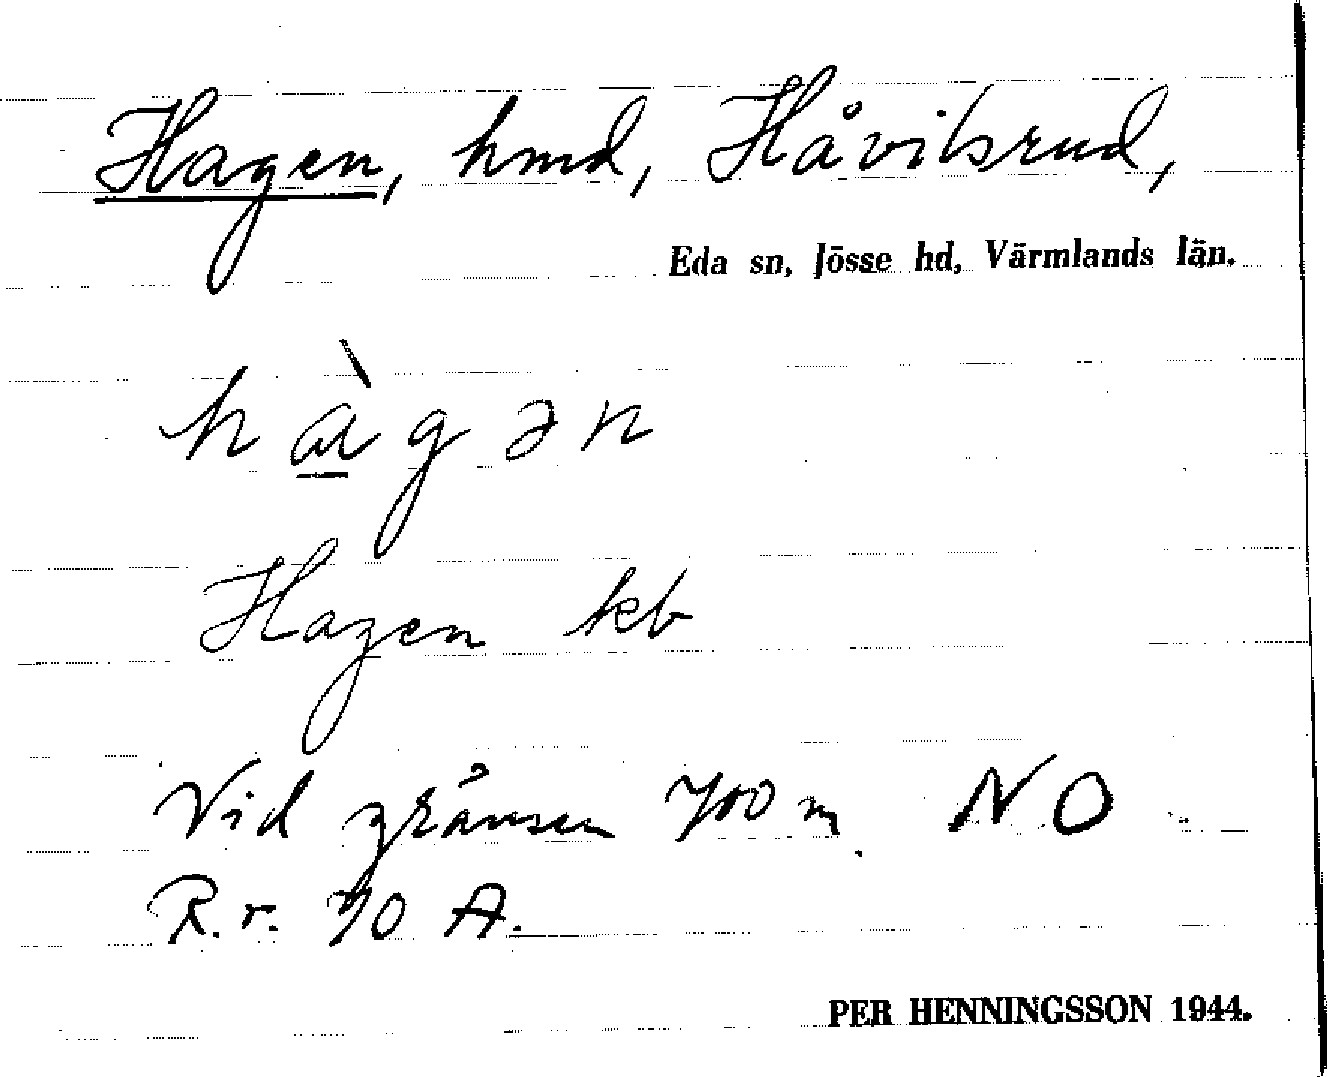 Hagen, hmd, Håvilsrud,
Eda sn, Jösse hd, Värmlands län.
hàgən
Hagen kb
Vid gränsen 700 m NO
R.r. 70 A.
PER HENNINGSSON 1944.